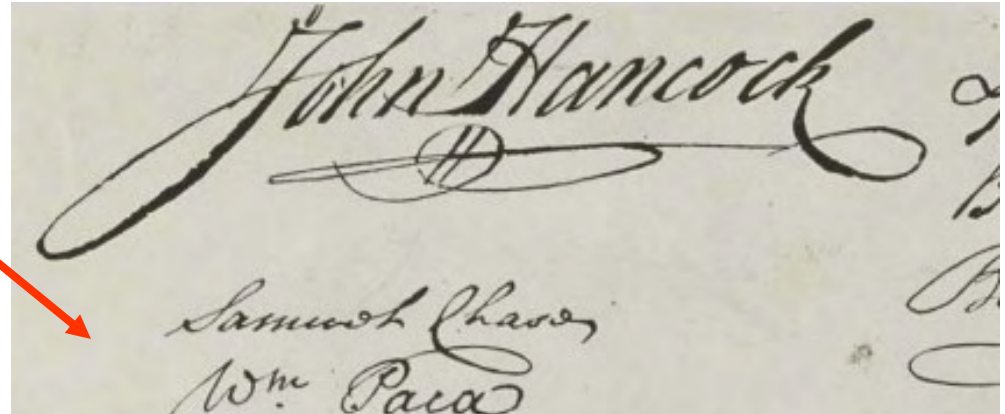 John Hancock
Samuel Chase
Wm Paca